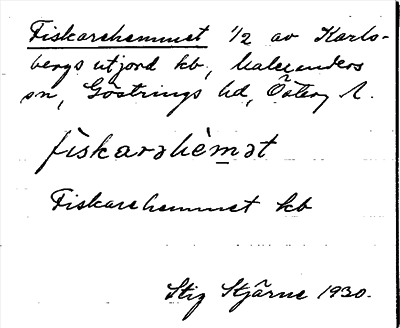 Fiskarehemmet 1/2 av Karls-
bergs utjord kb, Malexanders
sn, Göstrings hd, Österg l.
fìskarəhèmət
Fiskarehemmet kb
Stig Stjärne 1930.